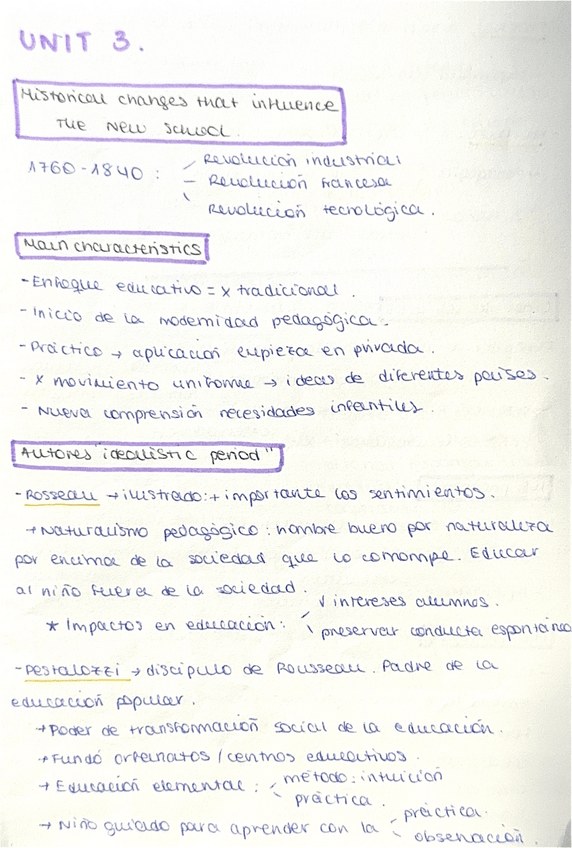 UNIT 3.
Historical changes that influence
The New School.
1760-1840 : Revolución industrial
- Revolución francesa
Revolución tecnológica.
Main characteristics
- Enfoque educativo = x tradicional.
- Inicio de la modernidad pedagógica.
- Práctico → aplicación empieza en privada.
- x movimiento uniforme → ideas de diferentes países.
- Nueva comprensión necesidades infantiles.
Autores "idealistic period"
- Rosseau → ilustrado: + importante los sentimientos.
→ Naturalismo pedagógico: hombre bueno por naturaleza
por encima de la sociedad que lo corrompe. Educar
al niño fuera de la sociedad.
√ intereses alumnos.
* Impactos en educación:
preservar conducta espontánea
- Pestalozzi → discípulo de Rousseau. Padre de la
educación popular.
→ Poder de transformación social de la educación.
→ Fundó orfanatos / centros educativos.
→ Educación elemental: método: intuición
práctica.
→ Niño guiado para aprender con la práctica.
observación.